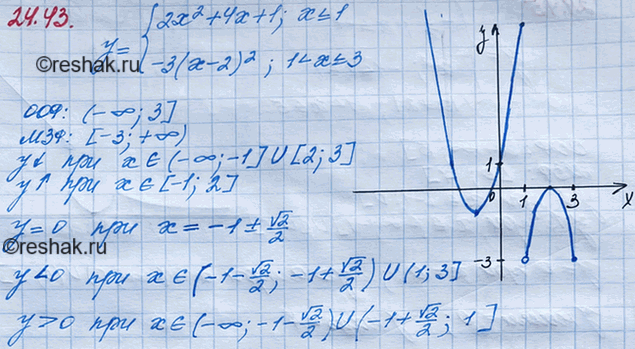 24.43.
y = { 2x² + 4x + 1; x ≤ 1
-3(x-2)²; 1 < x ≤ 3
©reshak.ru
ООФ: (-∞; 3]
МЗФ: [-3; +∞)
y↓ при x ∈ (-∞; -1] U [2; 3]
y↑ при x ∈ [-1; 2]
y = 0 при x = -1 ± √2/2
©reshak.ru
y < 0 при x ∈ (-1 - √2/2; -1 + √2/2) U (1; 3]
y > 0 при x ∈ (-∞; -1 - √2/2) U (-1 + √2/2; 1]
y
1
0
1
3
x
-3